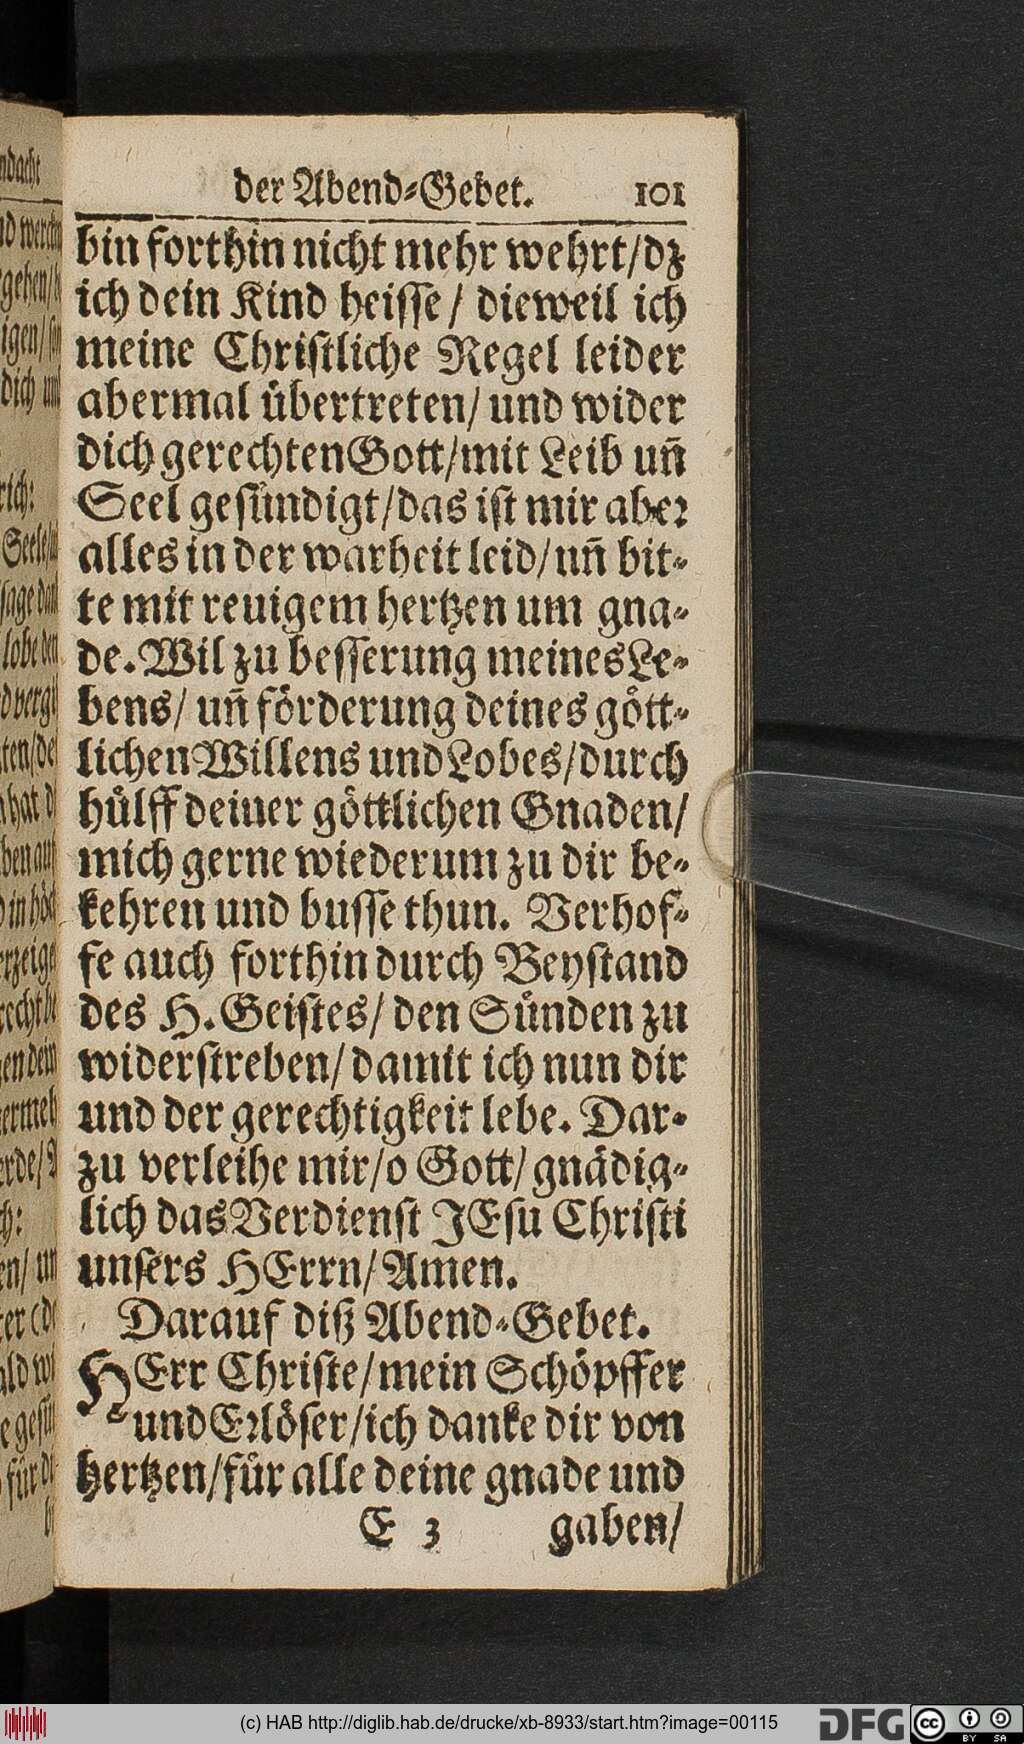 der Abend-Gebet. 101
bin forthin nicht mehr wehrt/dz
ich dein Kind heisse/ dieweil ich
meine Christliche Regel leider
abermal übertreten/ und wider
dich gerechten Gott/mit Leib uñ
Seel gesündigt/das ist mir aber
alles in der warheit leid/uñ bit-
te mit reuigem hertzen um gna-
de. Wil zu besserung meines Le-
bens/ uñ förderung deines gött-
lichen Willens und Lobes/durch
hülff deiner göttlichen Gnaden/
mich gerne wiederum zu dir be-
kehren und busse thun. Verhof-
fe auch forthin durch Beystand
des H. Geistes/ den Sünden zu
widerstreben/damit ich nun dir
und der gerechtigkeit lebe. Dar-
zu verleihe mir/o Gott/ gnädig-
lich das Verdienst JEsu Christi
unsers HErrn/Amen.
Darauf diß Abend-Gebet.
HErr Christe/mein Schöpffer
und Erlöser/ich danke dir von
hertzen/für alle deine gnade und
E 3 gaben/
(c) HAB http://diglib.hab.de/drucke/xb-8933/start.htm?image=00115
DFG cc BY SA